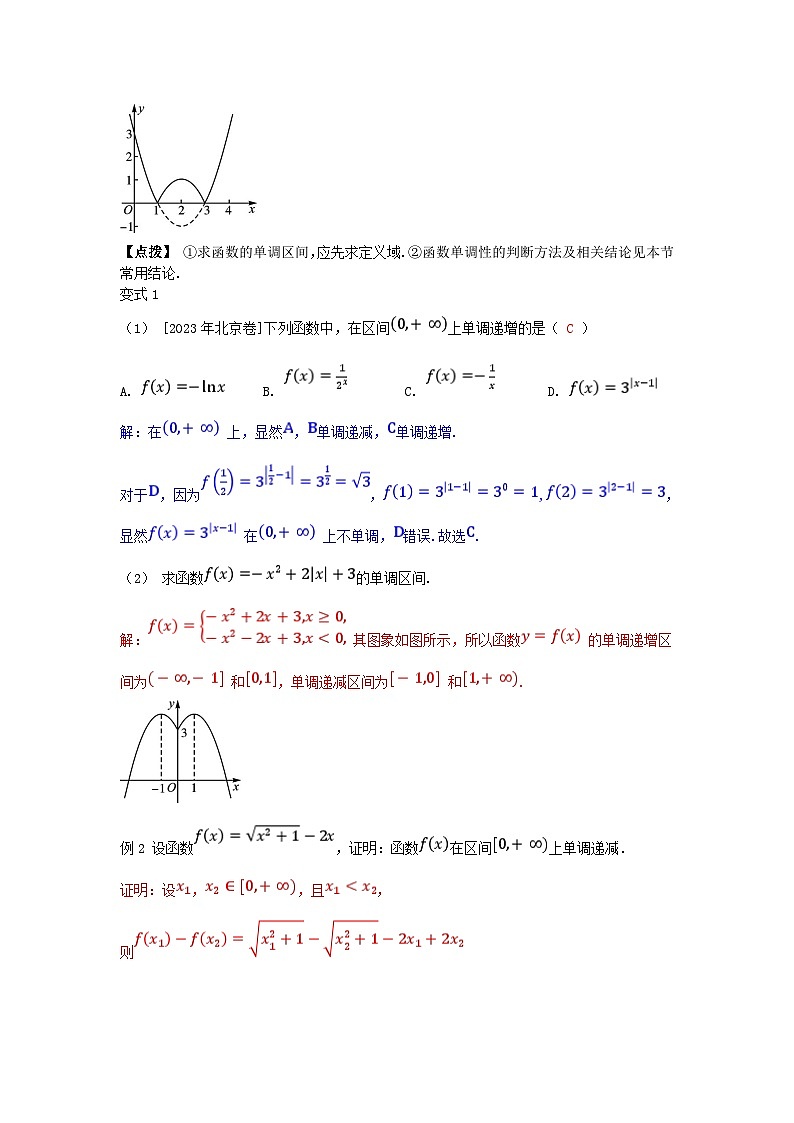 y
3
2
1
O 1 2 3 4 x
−1
【点拨】 ①求函数的单调区间,应先求定义域.②函数单调性的判断方法及相关结论见本节
常用结论.
变式1
(1) [2023年北京卷]下列函数中,在区间(0,+∞)上单调递增的是( C )
A. f(x)=−lnx B. f(x)=1/2^x C. f(x)=−1/x D. f(x)=3^|x−1|
解:在(0,+∞) 上,显然A,B单调递减,C单调递增.
对于D,因为f(1/2)=3^|1/2−1|=3^(1/2)=√3,f(1)=3^|1−1|=3^0=1,f(2)=3^|2−1|=3,
显然f(x)=3^|x−1| 在(0,+∞) 上不单调,D错误.故选C.
(2) 求函数f(x)=−x²+2|x|+3的单调区间.
解:f(x)={−x²+2x+3,x≥0, −x²−2x+3,x<0, 其图象如图所示,所以函数y=f(x) 的单调递增区
间为(−∞,−1] 和[0,1],单调递减区间为[−1,0] 和[1,+∞).
y
3
−1 O 1 x
例2 设函数f(x)=√(x²+1)−2x,证明:函数f(x)在区间[0,+∞)上单调递减.
证明:设x₁,x₂∈[0,+∞),且x₁<x₂,
则f(x₁)−f(x₂)=√(x₁²+1)−√(x₂²+1)−2x₁+2x₂